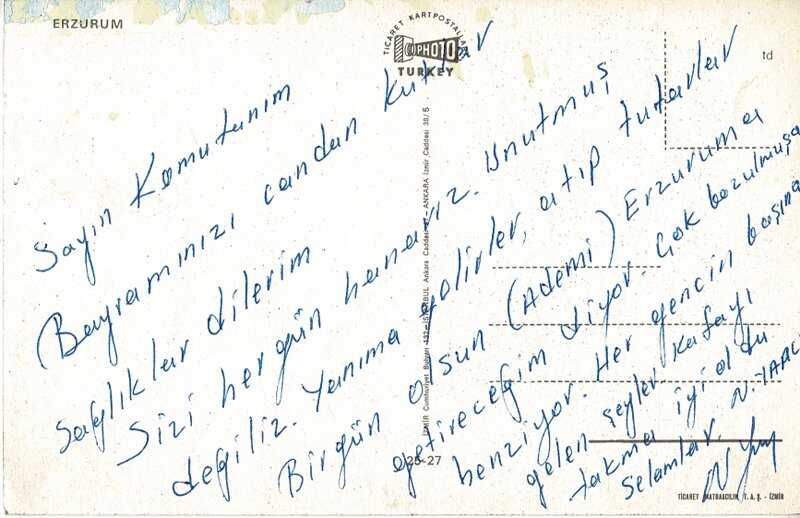 ERZURUM
TİCARET KARTPOSTALLARI
PHOTO
TURKEY
td
Sayın Komutanım
Bayramınızı candan kutlar
Sağlıklar dilerim.
Sizi hergün hanayız. Unutmuş
değiliz. Yanıma gelirler, atıp tutarlar
Birgün olsun (Ademi) Erzuruma
getireceğim diyor. Çok bozulmuşa
benziyor. Her gencin başına
gelen şeyler kafayı
takma iyi oldu
Selamlar.
İZMİR Cumhuriyet Bulvarı 132 - İSTANBUL Ankara Caddesi - ANKARA İzmir Caddesi 38/5
25-27
TİCARET MATBAACILIK T. A. Ş. - İZMİR